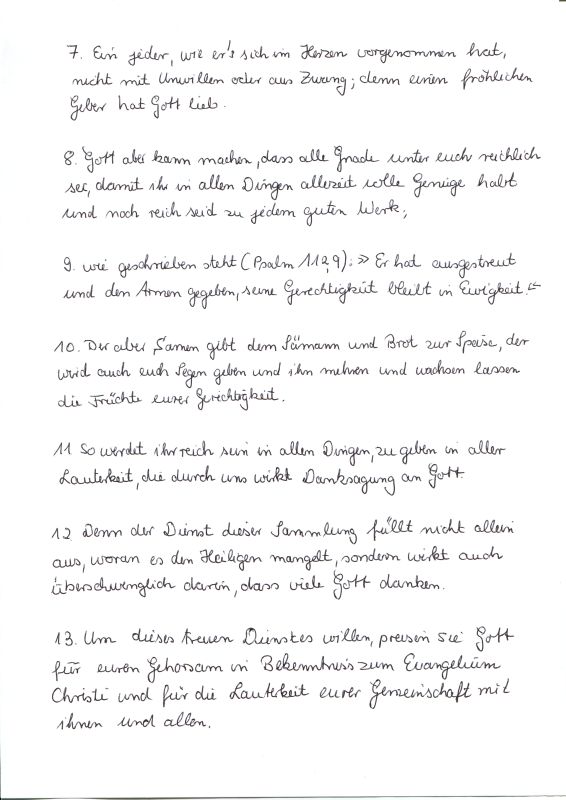 7. Ein jeder, wie er's sich im Herzen vorgenommen hat,
nicht mit Unwillen oder aus Zwang; denn einen fröhlichen
Geber hat Gott lieb.
8. Gott aber kann machen, dass alle Gnade unter euch reichlich
sei, damit ihr in allen Dingen allezeit volle Genüge habt
und noch reich seid zu jedem guten Werk;
9. wie geschrieben steht (Psalm 112,9): » Er hat ausgestreut
und den Armen gegeben, seine Gerechtigkeit bleibt in Ewigkeit.«
10. Der aber Samen gibt dem Sämann und Brot zur Speise, der
wird auch euch Segen geben und ihn mehren und wachsen lassen
die Früchte eurer Gerechtigkeit.
11 So werdet ihr reich sein in allen Dingen, zu geben in aller
Lauterkeit, die durch uns wirkt Danksagung an Gott.
12 Denn der Dienst dieser Sammlung füllt nicht allein
aus, woran es den Heiligen mangelt, sondern wirkt auch
überschwenglich darin, dass viele Gott danken.
13. Um dieses treuen Dienstes willen, preisen sie Gott
für euren Gehorsam im Bekenntnis zum Evangelium
Christi und für die Lauterkeit eurer Gemeinschaft mit
ihnen und allen.